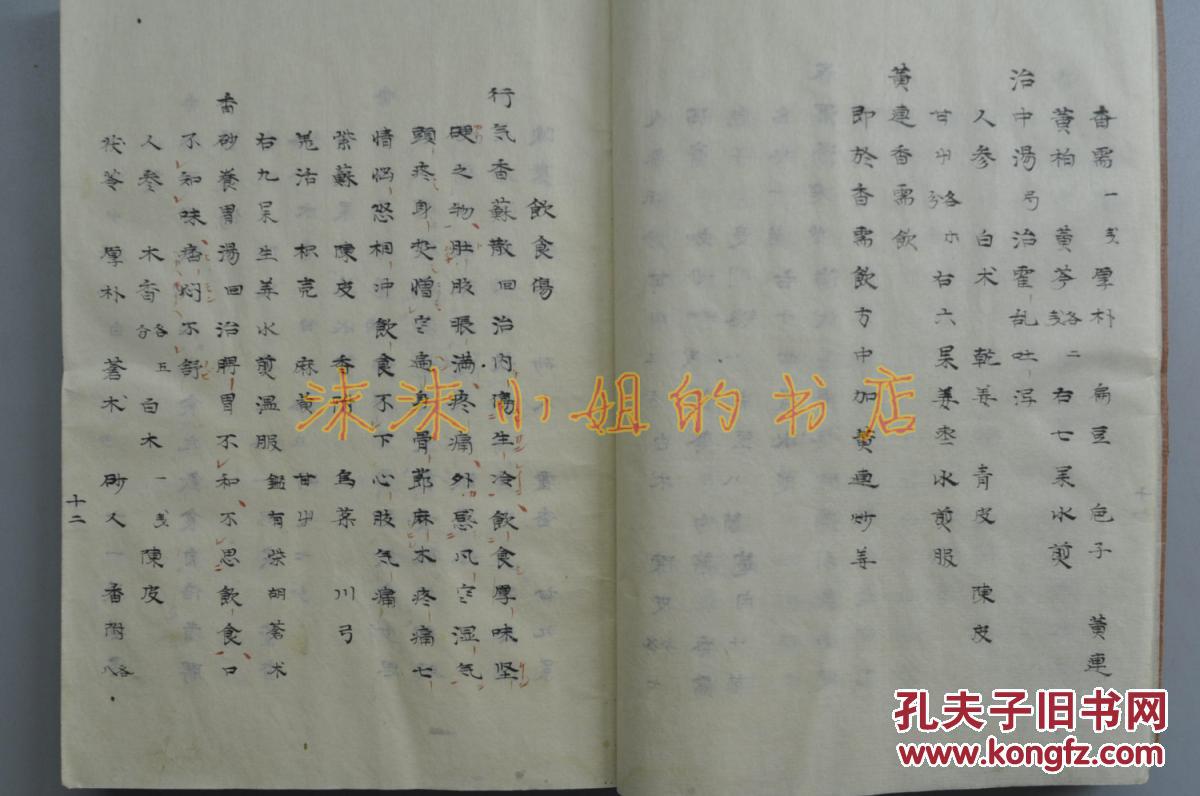 香需一戔厚朴 扁豆 色子 黄連
黄柏 黄芩各二戔 右七呆水煎
治中湯 治霍乱吐泻
人参 白术 乾姜 青皮 陳皮
甘艸各分 右六呆姜枣水煎服
黄連香需飲
即於香需飲方中加黄連炒姜
飲食傷
行気香蘇散回治内傷生冷飲食厚味坚
硬之物肚肢脹満疼痛外感风寒湿気
頭疼身热憎寒遍身骨節麻木疼痛七
情悩怒相冲飲食不下心肢気痛
紫蘇 陳皮 香附 烏藥 川弓
羌活 枳壳 麻黄 甘艸
右九呆生姜水煎温服 有柴胡蒼术
香砂養胃湯回治脾胃不和不思飲食口
不知味痞悶不舒
人参 木香各五分 白术一戔 陳皮
茯苓 厚朴 蒼术 砂人 香附各八
十二
沫沫小姐的书店
孔夫子旧书网
www.kongfz.com